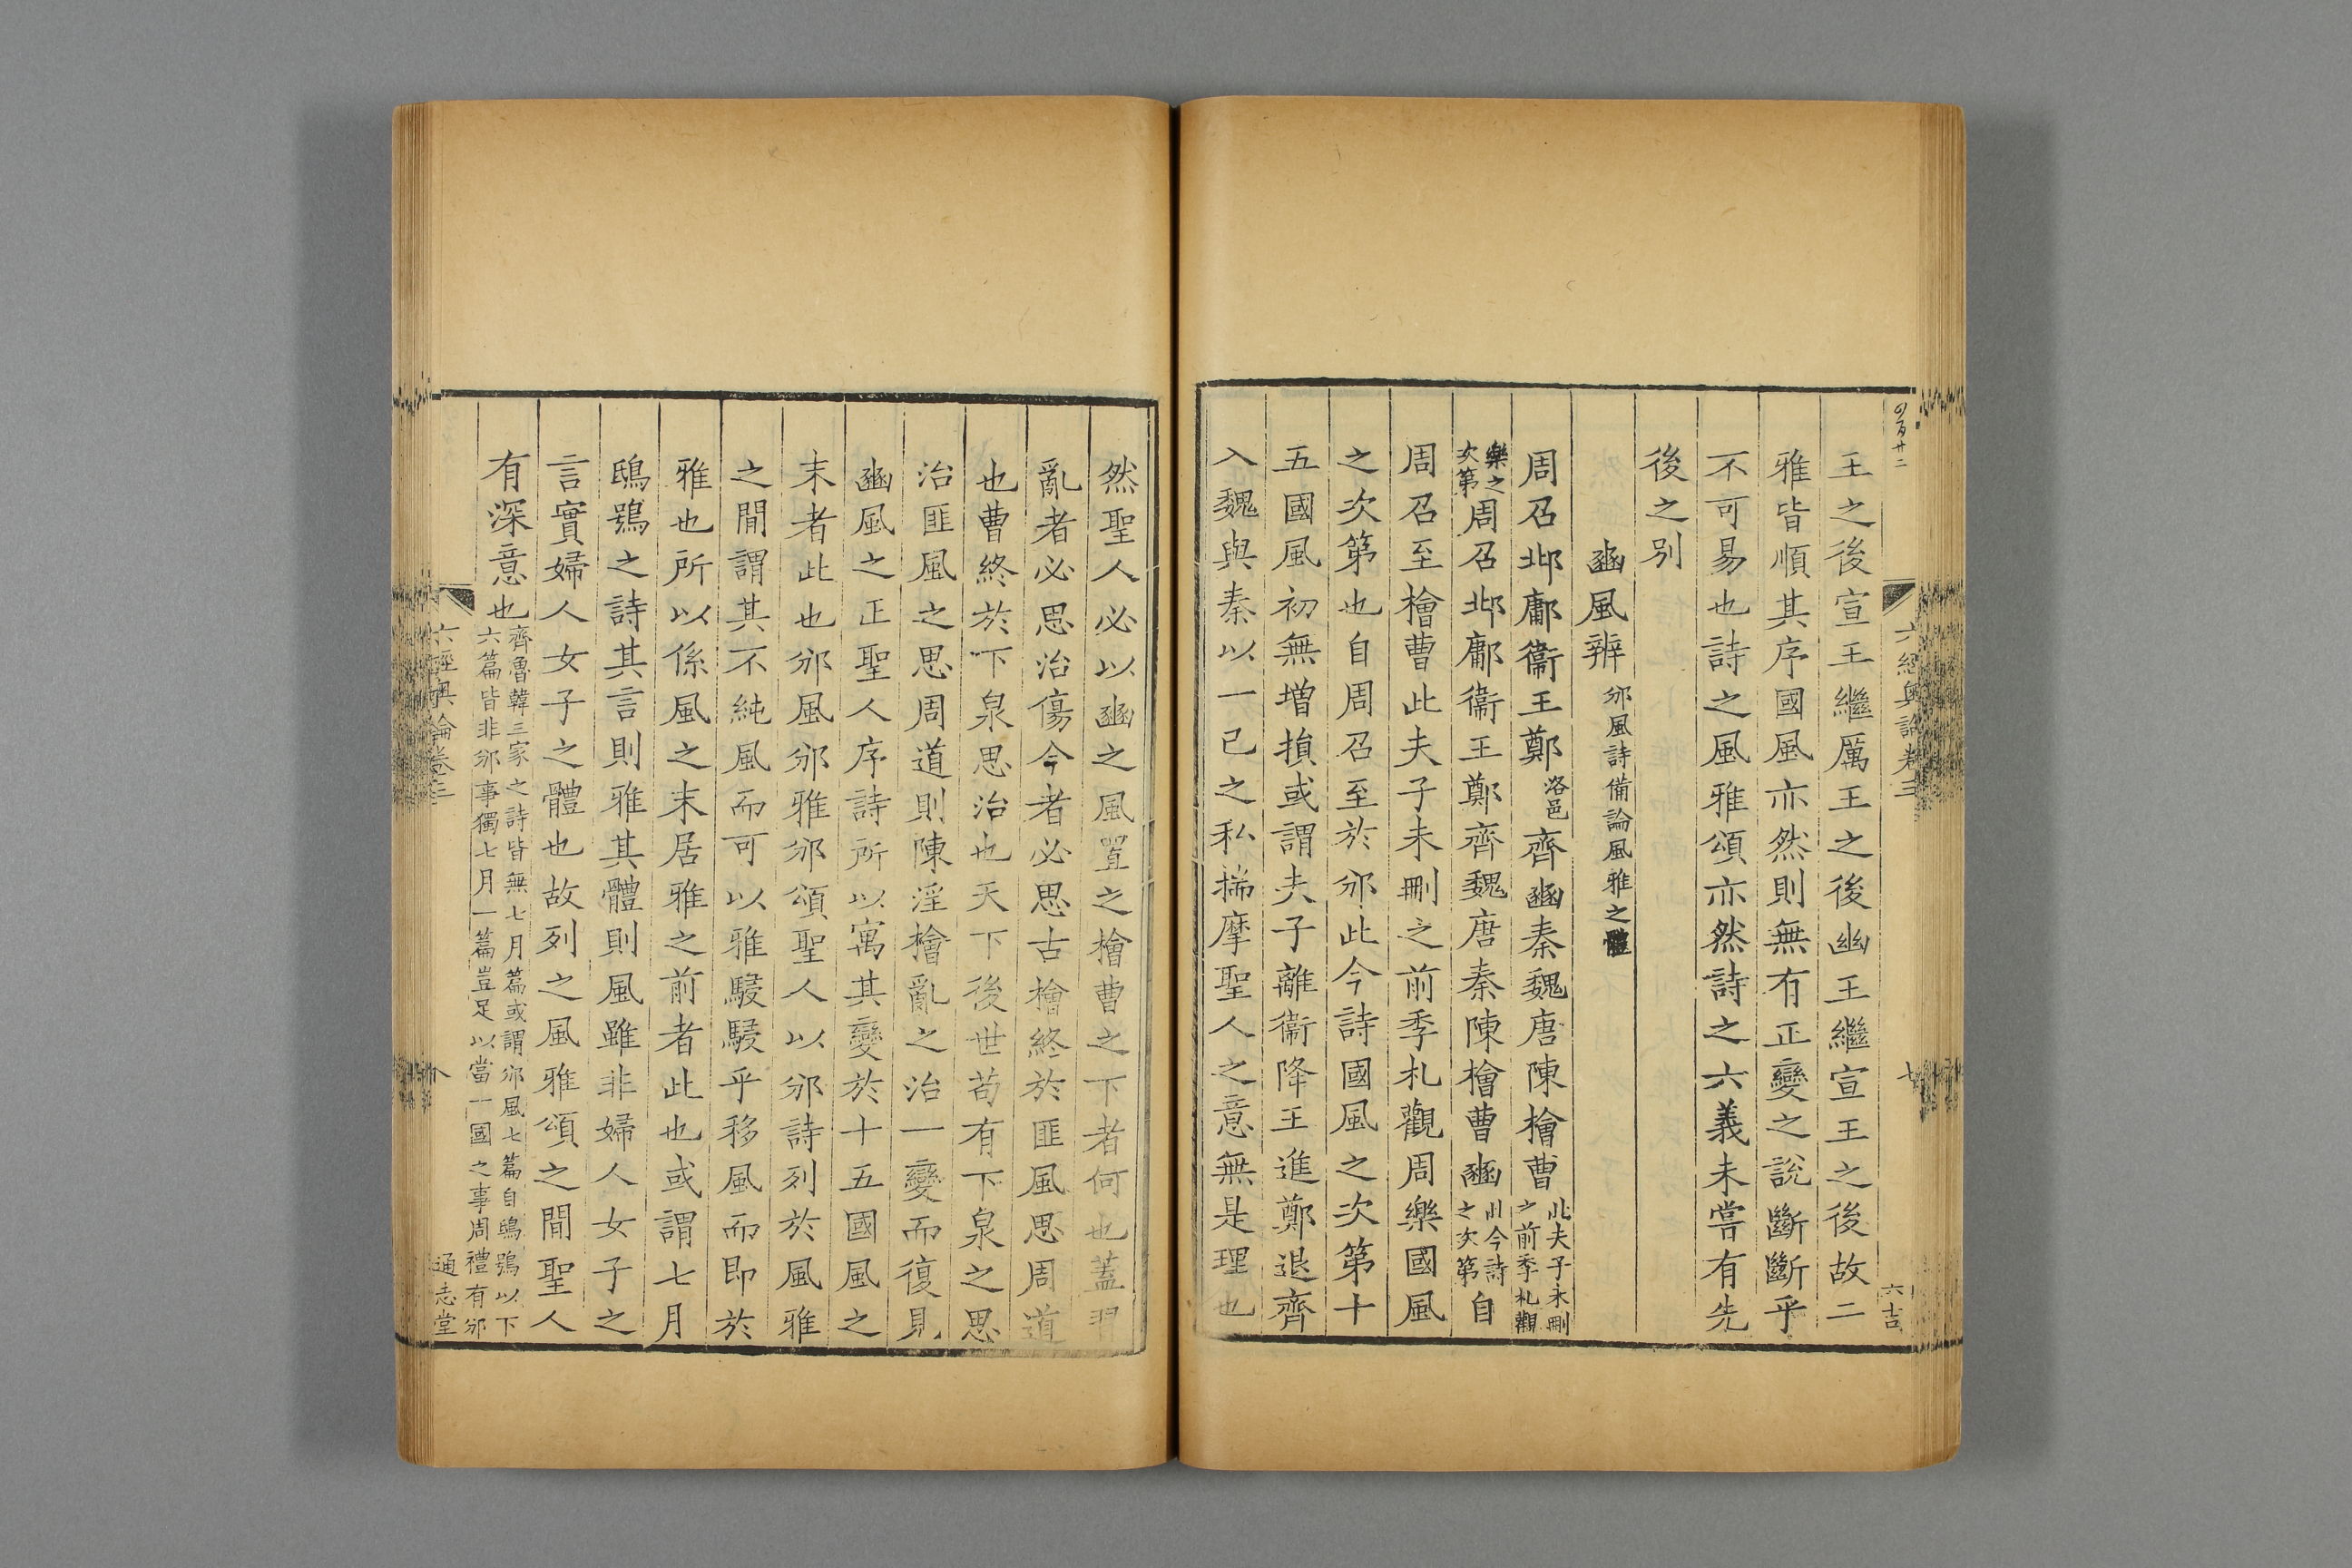 王之後宣王繼厲王之後幽王繼宣王之後故二
雅皆順其序國風亦然則無有正變之說斷斷乎
不可易也詩之風雅頌亦然詩之六義未嘗有先
後之別
豳風辨 邠風詩備論風雅之體
周召邶鄘衞王鄭洛邑齊豳秦魏唐陳檜曹此夫子未刪之前季札觀
樂之次第周召邶鄘衞王鄭齊魏唐秦陳檜曹豳此今詩之次第自
周召至檜曹此夫子未刪之前季札觀周樂國風
之次第也自周召至於邠此今詩國風之次第十
五國風初無增損或謂夫子離衞降王進鄭退齊
入魏與秦以一己之私揣摩聖人之意無是理也
六經奧論卷三
七
然聖人必以豳之風置之檜曹之下者何也蓋習
亂者必思治傷今者必思古檜終於匪風思周道
也曹終於下泉思治也天下後世苟有下泉之思
治匪風之思周道則陳淫檜亂之治一變而復見
豳風之正聖人序詩所以寓其變於十五國風之
末者此也邠風邠雅邠頌聖人以邠詩列於風雅
之間謂其不純風而可以雅駸駸乎移風而即於
雅也所以係風之末居雅之前者此也或謂七月
鴟鴞之詩其言則雅其體則風雖非婦人女子之
言實婦人女子之體也故列之風雅頌之間聖人
有深意也齊魯韓三家之詩皆無七月篇或謂邠風七篇自鴟鴞以下
六篇皆非邠事獨七月一篇豈足以當一國之事周禮有邠
六經奧論卷三
八
通志堂